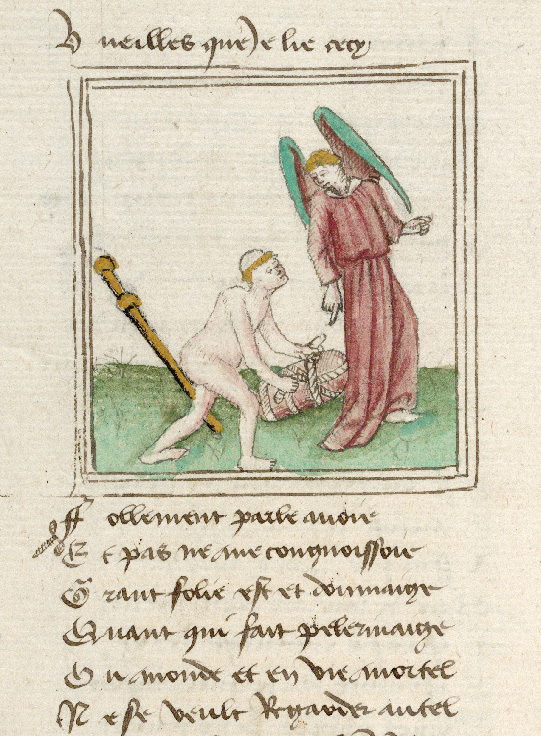 Vueilles que Je lie cecy
Follement parle avoie
Et pas ne me congnoissoie
Grant folie est et dommaige
Quant qui fait pelerinaige
Du monde et en vie mortel
Ne se veult Regarder autel